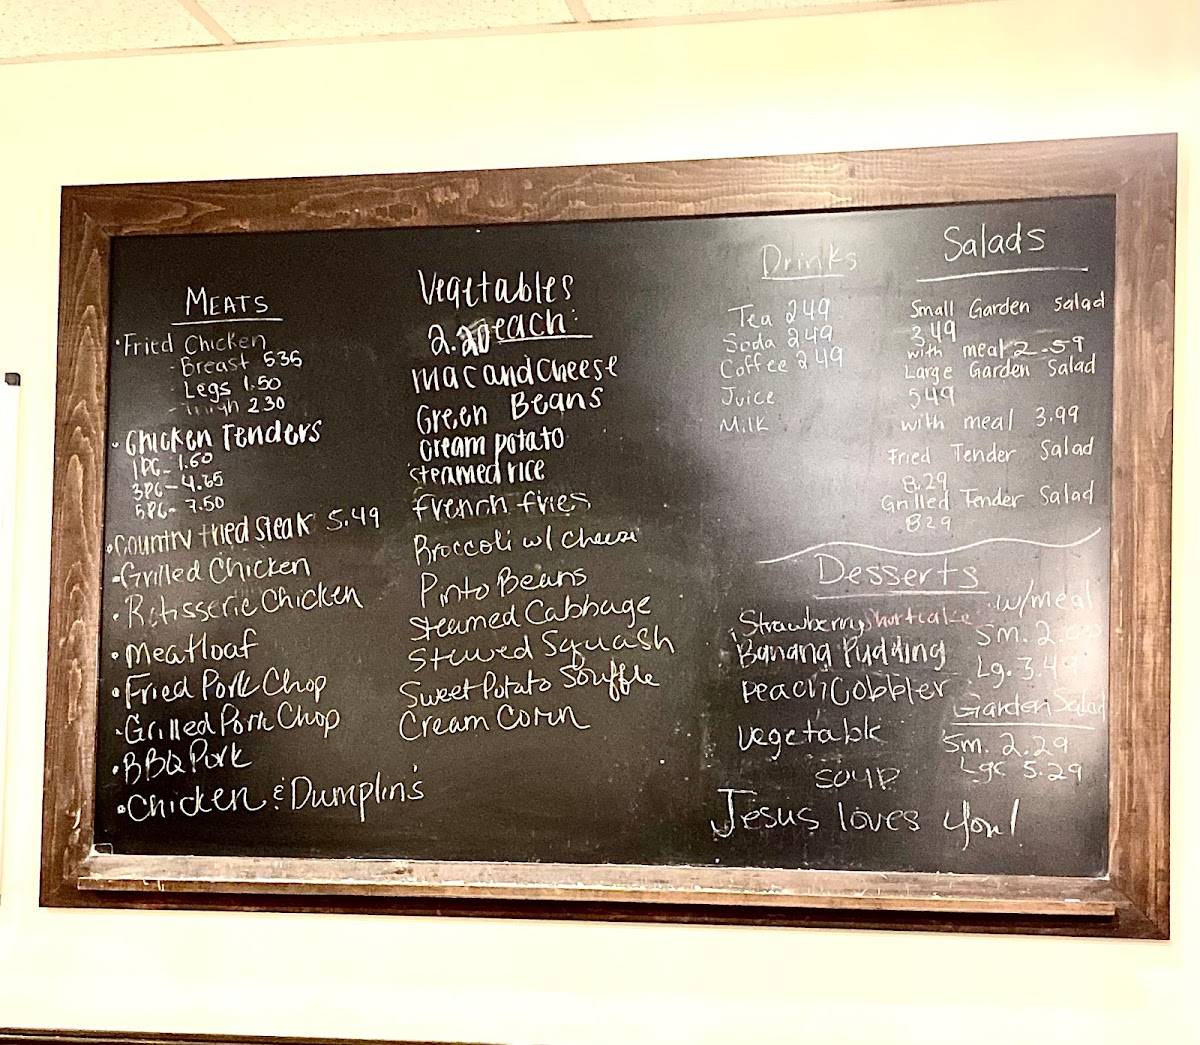 MEATS
Fried Chicken
- Breast 535
- Legs 1.50
- Thigh 230
Chicken Tenders
1PC- 1.60
3PC- 4.65
5PC- 7.50
Country fried steak 5.49
Grilled Chicken
Rotisserie Chicken
Meatloaf
Fried Pork Chop
Grilled Pork Chop
BBQ Pork
Chicken & Dumplin's
Vegetables
2.20 each
mac and Cheese
Green Beans
Cream potato
steamed rice
french fries
Broccoli w/ cheese
Pinto Beans
Steamed Cabbage
Stewed Squash
Sweet Potato Souffle
Cream Corn
Drinks
Tea 249
Soda 249
Coffee 249
Juice
Milk
Salads
Small Garden salad
3.49
with meal 2.59
Large Garden Salad
549
with meal 3.99
Fried Tender Salad
8.29
Grilled Tender Salad
829
Desserts
Strawberry Shortcake
Banana Pudding
peach Cobbler
vegetable
soup
w/meal
Sm.
Lg. 3.49
Garden Salad
Sm. 2.29
Lge 5.29
Jesus loves you!